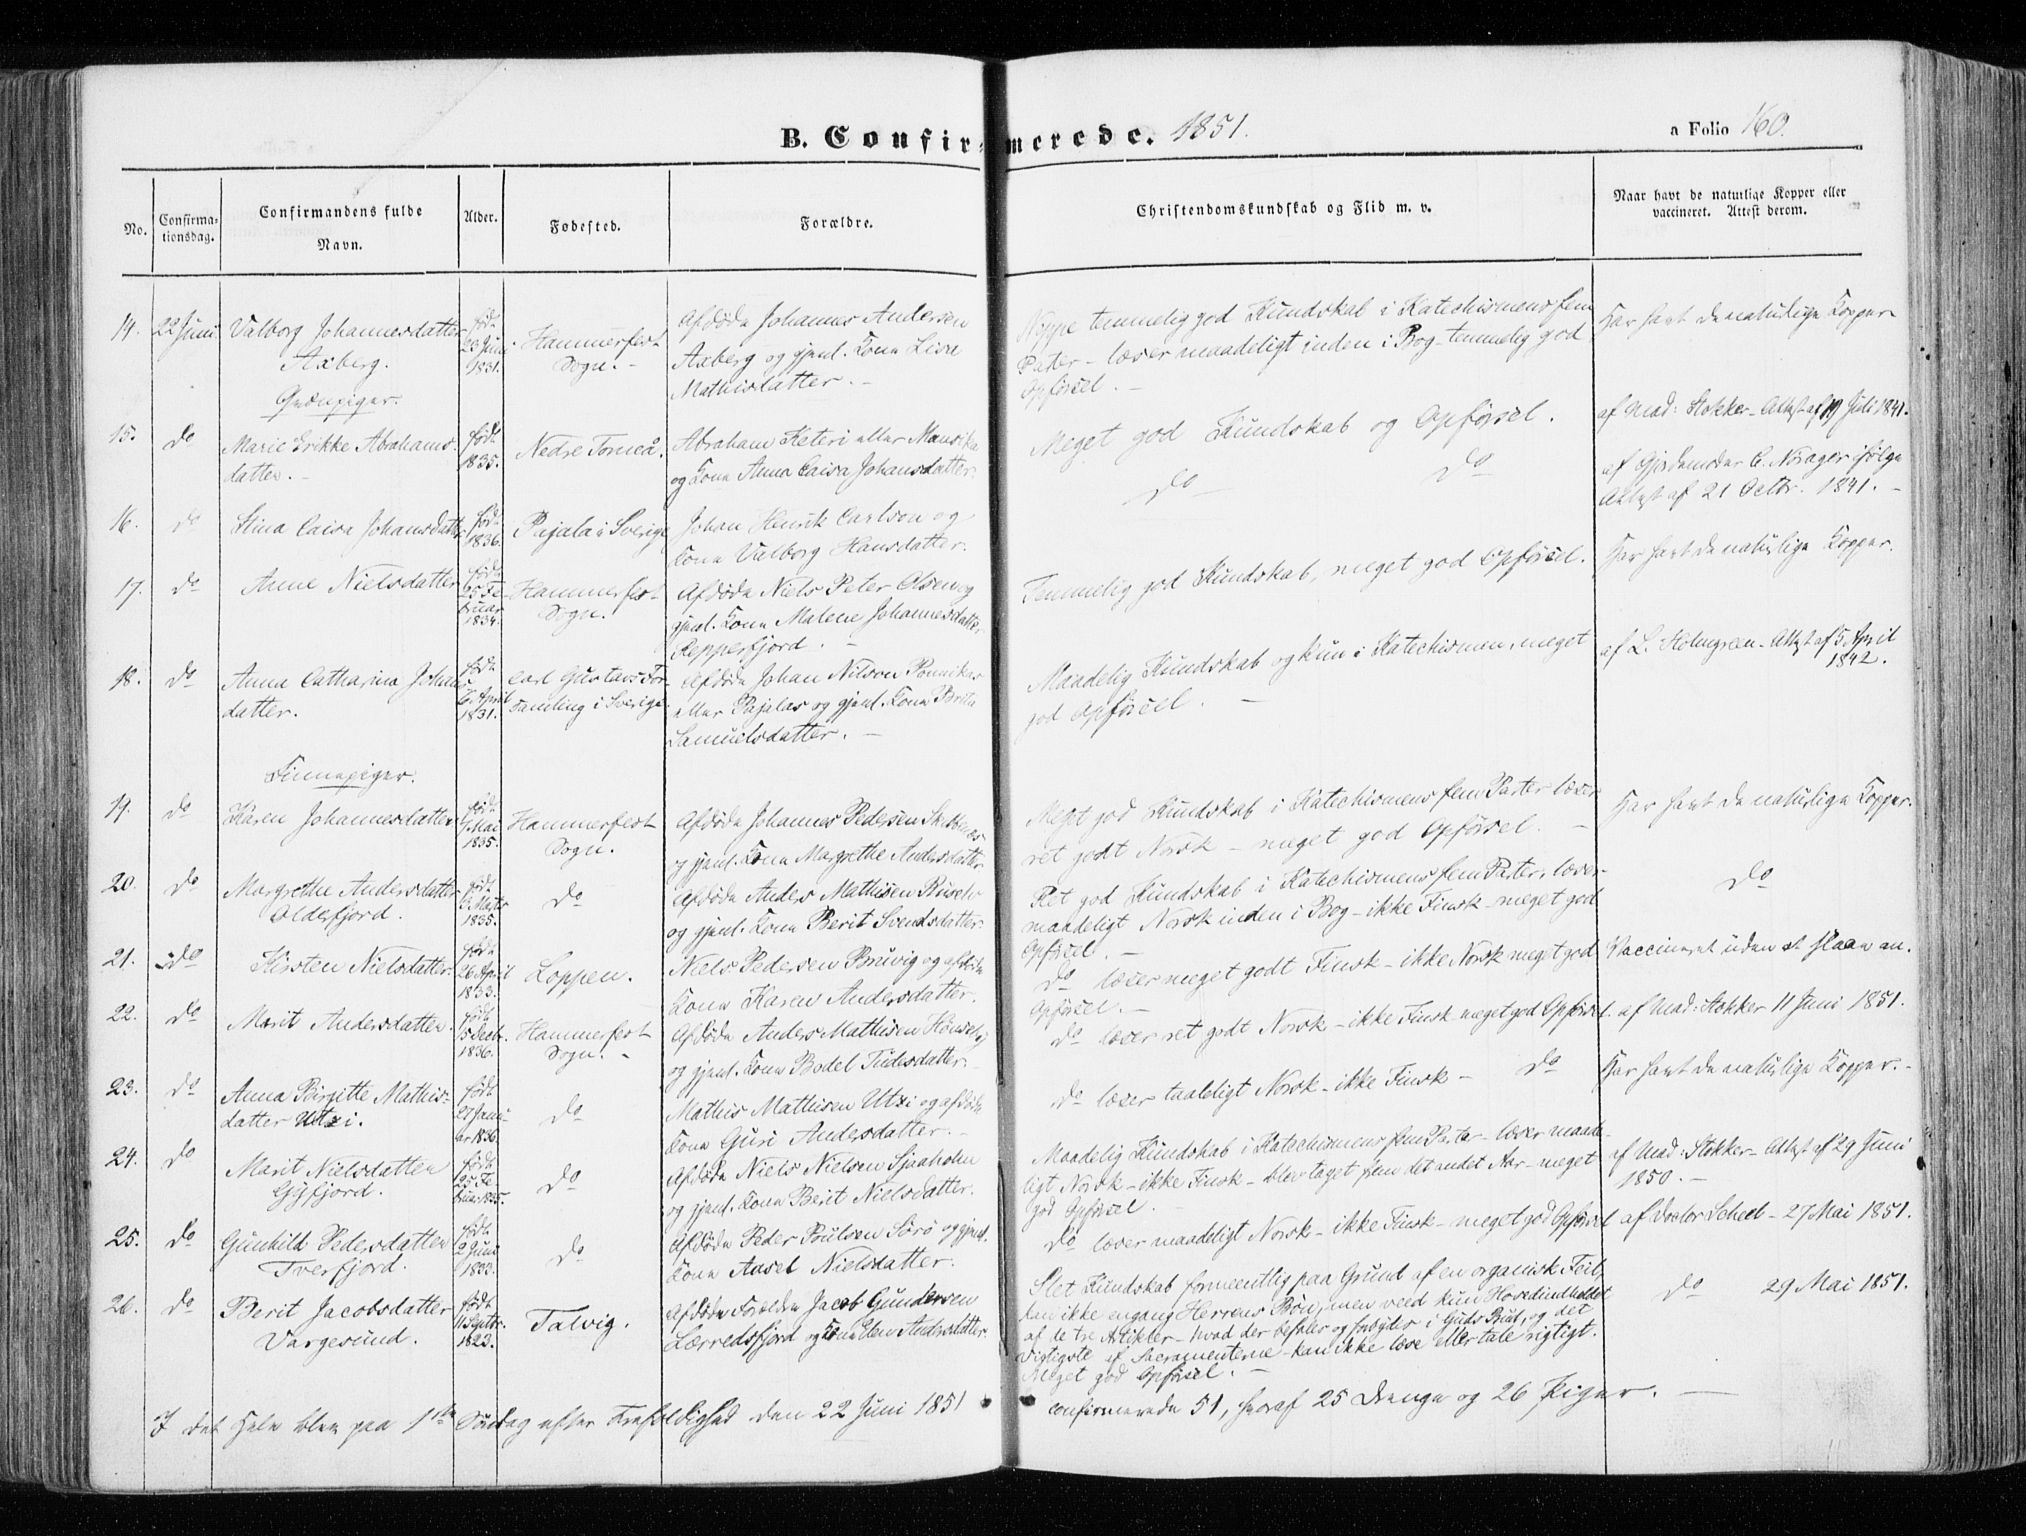 B. Confirmerede. 1851.
a Folio 160.
No.
Confirma-
tionsdag.
Confirmandens fulde
Navn.
Alder.
Fødested.
Forældre.
Christendomskundskab og Flid m. v.
Naar havt de naturlige Kopper eller
vaccineret. Attest derom.
14. 22 Juni Valborg Johannesdatter
Axberg.
født
23 Juni
1831.
Hammerfest
Sogn.
Afdøde Johannes Andersen
Axberg og gjenl. Kone Lisa
Mathisdatter.
Neppe temmelig god Kundskab i Katechismens fem
Parter - læser maadeligt inden i Bog - temmelig god
Opførsel.
Har havt de naturlige Kopper
Qvænpiger.
15. do Marie Erikke Abrahams-
datter.
født
1835.
Nedre Torneå.
Abraham Keteri eller
og Kone Anna Caisa Johansdatter.
Meget god Kundskab og Opførsel.
af Mad: Stokker - Attest af 19 Juli 1841.
16. do Stina Caisa Johansdatter
født
1836.
Pajala i Sverige
Johan Henrik Carlson og
Kone Valborg Hansdatter.
do do
af Gjordemoder C. Norager ifølge
Attest af 21 Octbr. 1841.
17. do Anne Nielsdatter
født
25 Fe-
bruar
1834.
Hammerfest
Sogn.
Afdøde Niels Peter Olsen og
gjenl. Kone Malene Johannesdatter
Repperfjord.
Temmelig god Kundskab, meget god Opførsel.
Har havt de naturlige Kopper.
18. do Anna Catharina Johans
datter.
født
6 April
1831.
Carl Gustavs For-
samling i Sverige
Afdøde Johan Nilson Ponnikas
eller Pajalas og gjenl. Kone Brita
Samuelsdatter.
Maadelig Kundskab og kun i Katechismen, meget
god Opførsel.
af L. Holmgreen - Attest af 5 April
1842.
Finnepiger.
19. do Karen Johannesdatter
født
Mai
1835.
Hammerfest
Sogn.
Afdøde Johannes Pedersen
og gjenl. Kone Margrethe Andersdatter
Meget god Kundskab i Katechismens fem Parter læser
ret godt Norsk - meget god Opførsel.
Har havt de naturlige Kopper.
20. do Margrethe Andersdatter
Olderfjord.
født
Marts
1835.
do
Afdøde Anders Mathisen
og gjenl. Kone Berit Svendsdatter.
Ret god Kundskab i Katechismens fem Parter, læser
maadeligt Norsk inden i Bog - ikke Finsk - meget god
Opførsel.
do
21. do Kirsten Nielsdatter
født
26 April
1833.
Loppen.
Niels Pedersen Bruvig og afdøde
Kone Karen Andersdatter.
do læser meget godt Finsk - ikke Norsk meget god
Opførsel.
Vaccineret uden at slaae an.
22. do Marit Andersdatter.
født
15 Decbr.
1836.
Hammerfest
Sogn.
Afdøde Anders Mathisen
og gjenl. Kone Bodel Tudesdatter.
do læser ret godt Norsk - ikke Finsk meget god Opførsel.
af Mad: Stokker 11 Juni 1851.
23. do Anna Birgitte Mathis-
datter Utzi.
født
27 Janu-
ar 1836.
do
Mathis Mathisen Utzi og afdøde
Kone Guri Andersdatter.
do læser taaleligt Norsk - ikke Finsk - do
Har havt de naturlige Kopper.
24. do Marit Nielsdatter
Gyfjord.
født
25 Fe-
bruar 1835.
do
Afdøde Niels Nielsen Sjaaholm
og gjenl. Kone Berit Nielsdatter.
Maadelig Kundskab i Katechismens fem Parter - læser maade-
ligt Norsk - ikke Finsk - blev taget frem det andet Aar - meget
god Opførsel.
af Mad: Stokker - Attest af 29 Juni
1850.
25. do Gunhild Pedersdatter
Tverfjord.
født
9 Juni
1833.
do
Afdøde Peder Poulsen Sørø og gjenl.
Kone Ansel Nielsdatter.
do læser maadeligt Norsk - ikke Finsk - meget god Opførsel
af Doctor Scheel - 27 Mai 1851.
26. do Berit Jacobsdatter
Vargesund.
født
11 Septbr.
1823.
Talvig.
Afdøde Forældre Jacob Gundersen
Lærredsfjord og Kone Ellen Andersdatter.
Slet Kundskab formeentlig paa Grund af en organisk Feil,
kan ikke engang Herrens Bøn, men veed kun Hovedindholdet
af de tre Artikler - hvad der befales og forbydes i Guds Bud, og det
Vigtigste af Sacramenterne - kan ikke læse eller tale rigtigt.
Meget god Opførsel.
do 29 Mai 1851.
I det Hele blev paa 1ste Søndag efter Trefoldighed den 22 Juni 1851 confirmerede 51, hvoraf 25 Drenge og 26 Piger.